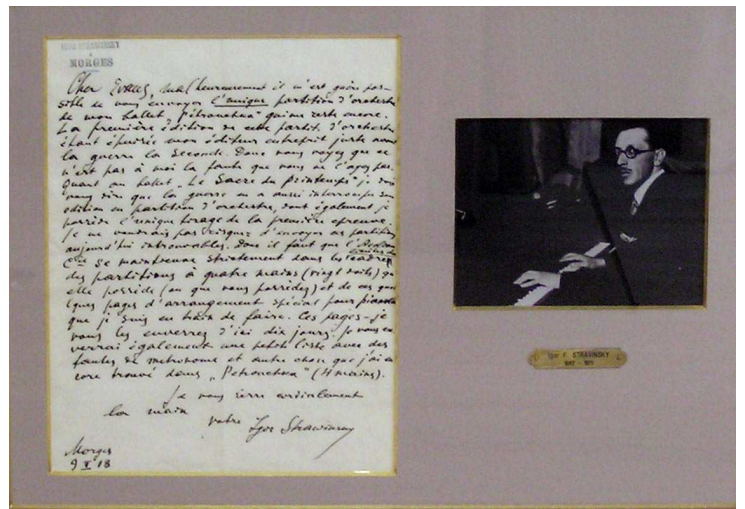 IGOR STRAWINSKY
MORGES
Cher Evans, malheureusement il n'est guère pos-
sible de vous envoyer l'unique partition d'orchestre
de mon ballet "Pétrouchka" qui me reste encore.
La première édition de cette partit. d'orchestre
étant épuisée mon éditeur entreprit juste avant
la guerre la seconde. Donc vous voyez que ce
n'est pas à moi la faute que vous ne l'ayez pas.
Quant au ballet "Le Sacre du Printemps" je dois
vous dire que la guerre en a aussi interrompu son
édition en partition d'orchestre, dont également je
possède l'unique tirage de la première épreuve.
Je ne voudrais pas risquer d'envoyer ces partitions
aujourd'hui introuvables. Donc il faut que l'Aeolian
Cie se maintienne strictement dans les cadres
des partitions à quatre mains (vingt doits) qu'
elle possède (ou que vous possédez) et de ces quel
ques pages d'arrangement spécial pour pianola
que je suis en train de faire. Ces pages-je
vous les enverrez d'ici dix jours. Je vous en
verrai également une petite liste avec des
fautes de metronome et autre chose que j'ai en
core trouvé dans "Petrouchka" (4 mains).
Je vous serre cordialement
la main
votre Igor Strawinsky
Morges
9 V 18
Igor F. STRAVINSKY
1882 - 1971